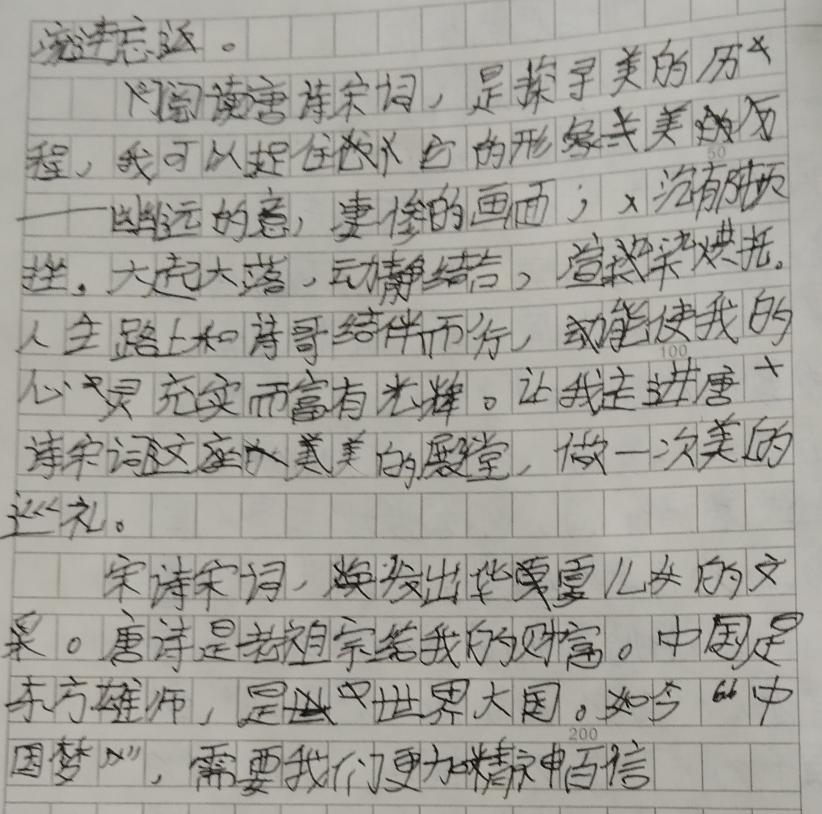 流连忘返。
阅读唐诗宋词，是探寻美的历
程，我可以捉住它的形象美
——幽远的意，凄俊的画面；沿有顿
挫。大起大落，动静结合，渲染烘托。
人生路上和诗哥结伴而行，就能使我的
心灵充实而富有光辉。让我走进唐
诗宋词这座美的殿堂，做一次美的
巡礼。
宋诗宋词，焕发出华夏儿女的文
采。唐诗是老祖宗给我的财富。中国是
东方雄师，是世界大国。如今“中
国梦”，需要我们更加精神百信
50
100
200